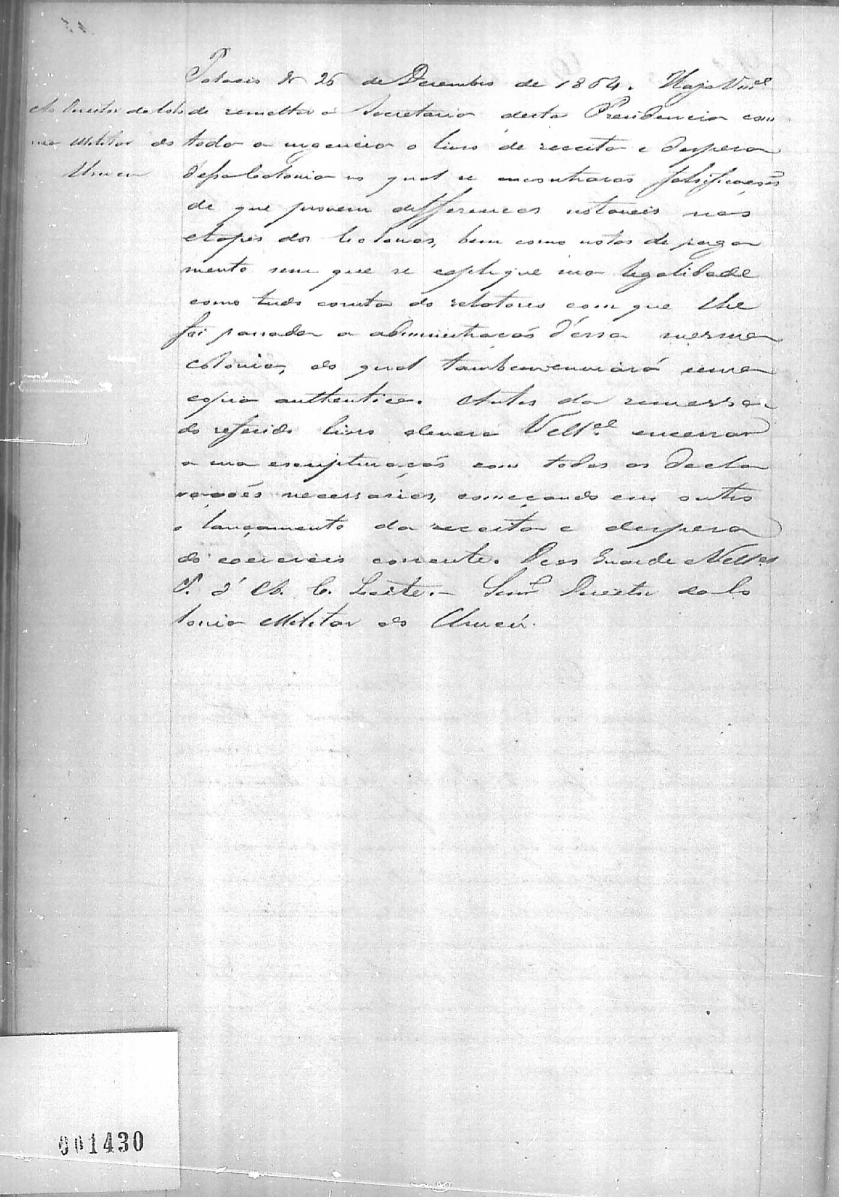 Palacio de 26 de Dezembro de 1864. Haja Vm.ce
Ao Director da Colo
nia Militar do
Urucú
de remetter á Secretaria desta Presidencia com
toda a urgencia o livro de receita e despeza
d'essa Colonia no qual se encontrarão falsificações
de que provem differenças notaveis nas
etapes dos Colonos, bem como notas de paga
mento sem que se explique sua legalidade
como tudo consta do relatores com que lhe
foi passada a administração d'essa mesma
colonia, do qual tambem enviará uma
copia authentica. Antes da remessa
do referido livro devera Vm.ce encerrar
a sua escripturação com todas as decla
rações necessarias, começando em outro
o lançamento da receita e despeza
do exercicio corrente. Deos Guarde Vm.ce
P. d' A. C. Leite. - Senr. Director da Co
lonia Militar do Urucú.
001430